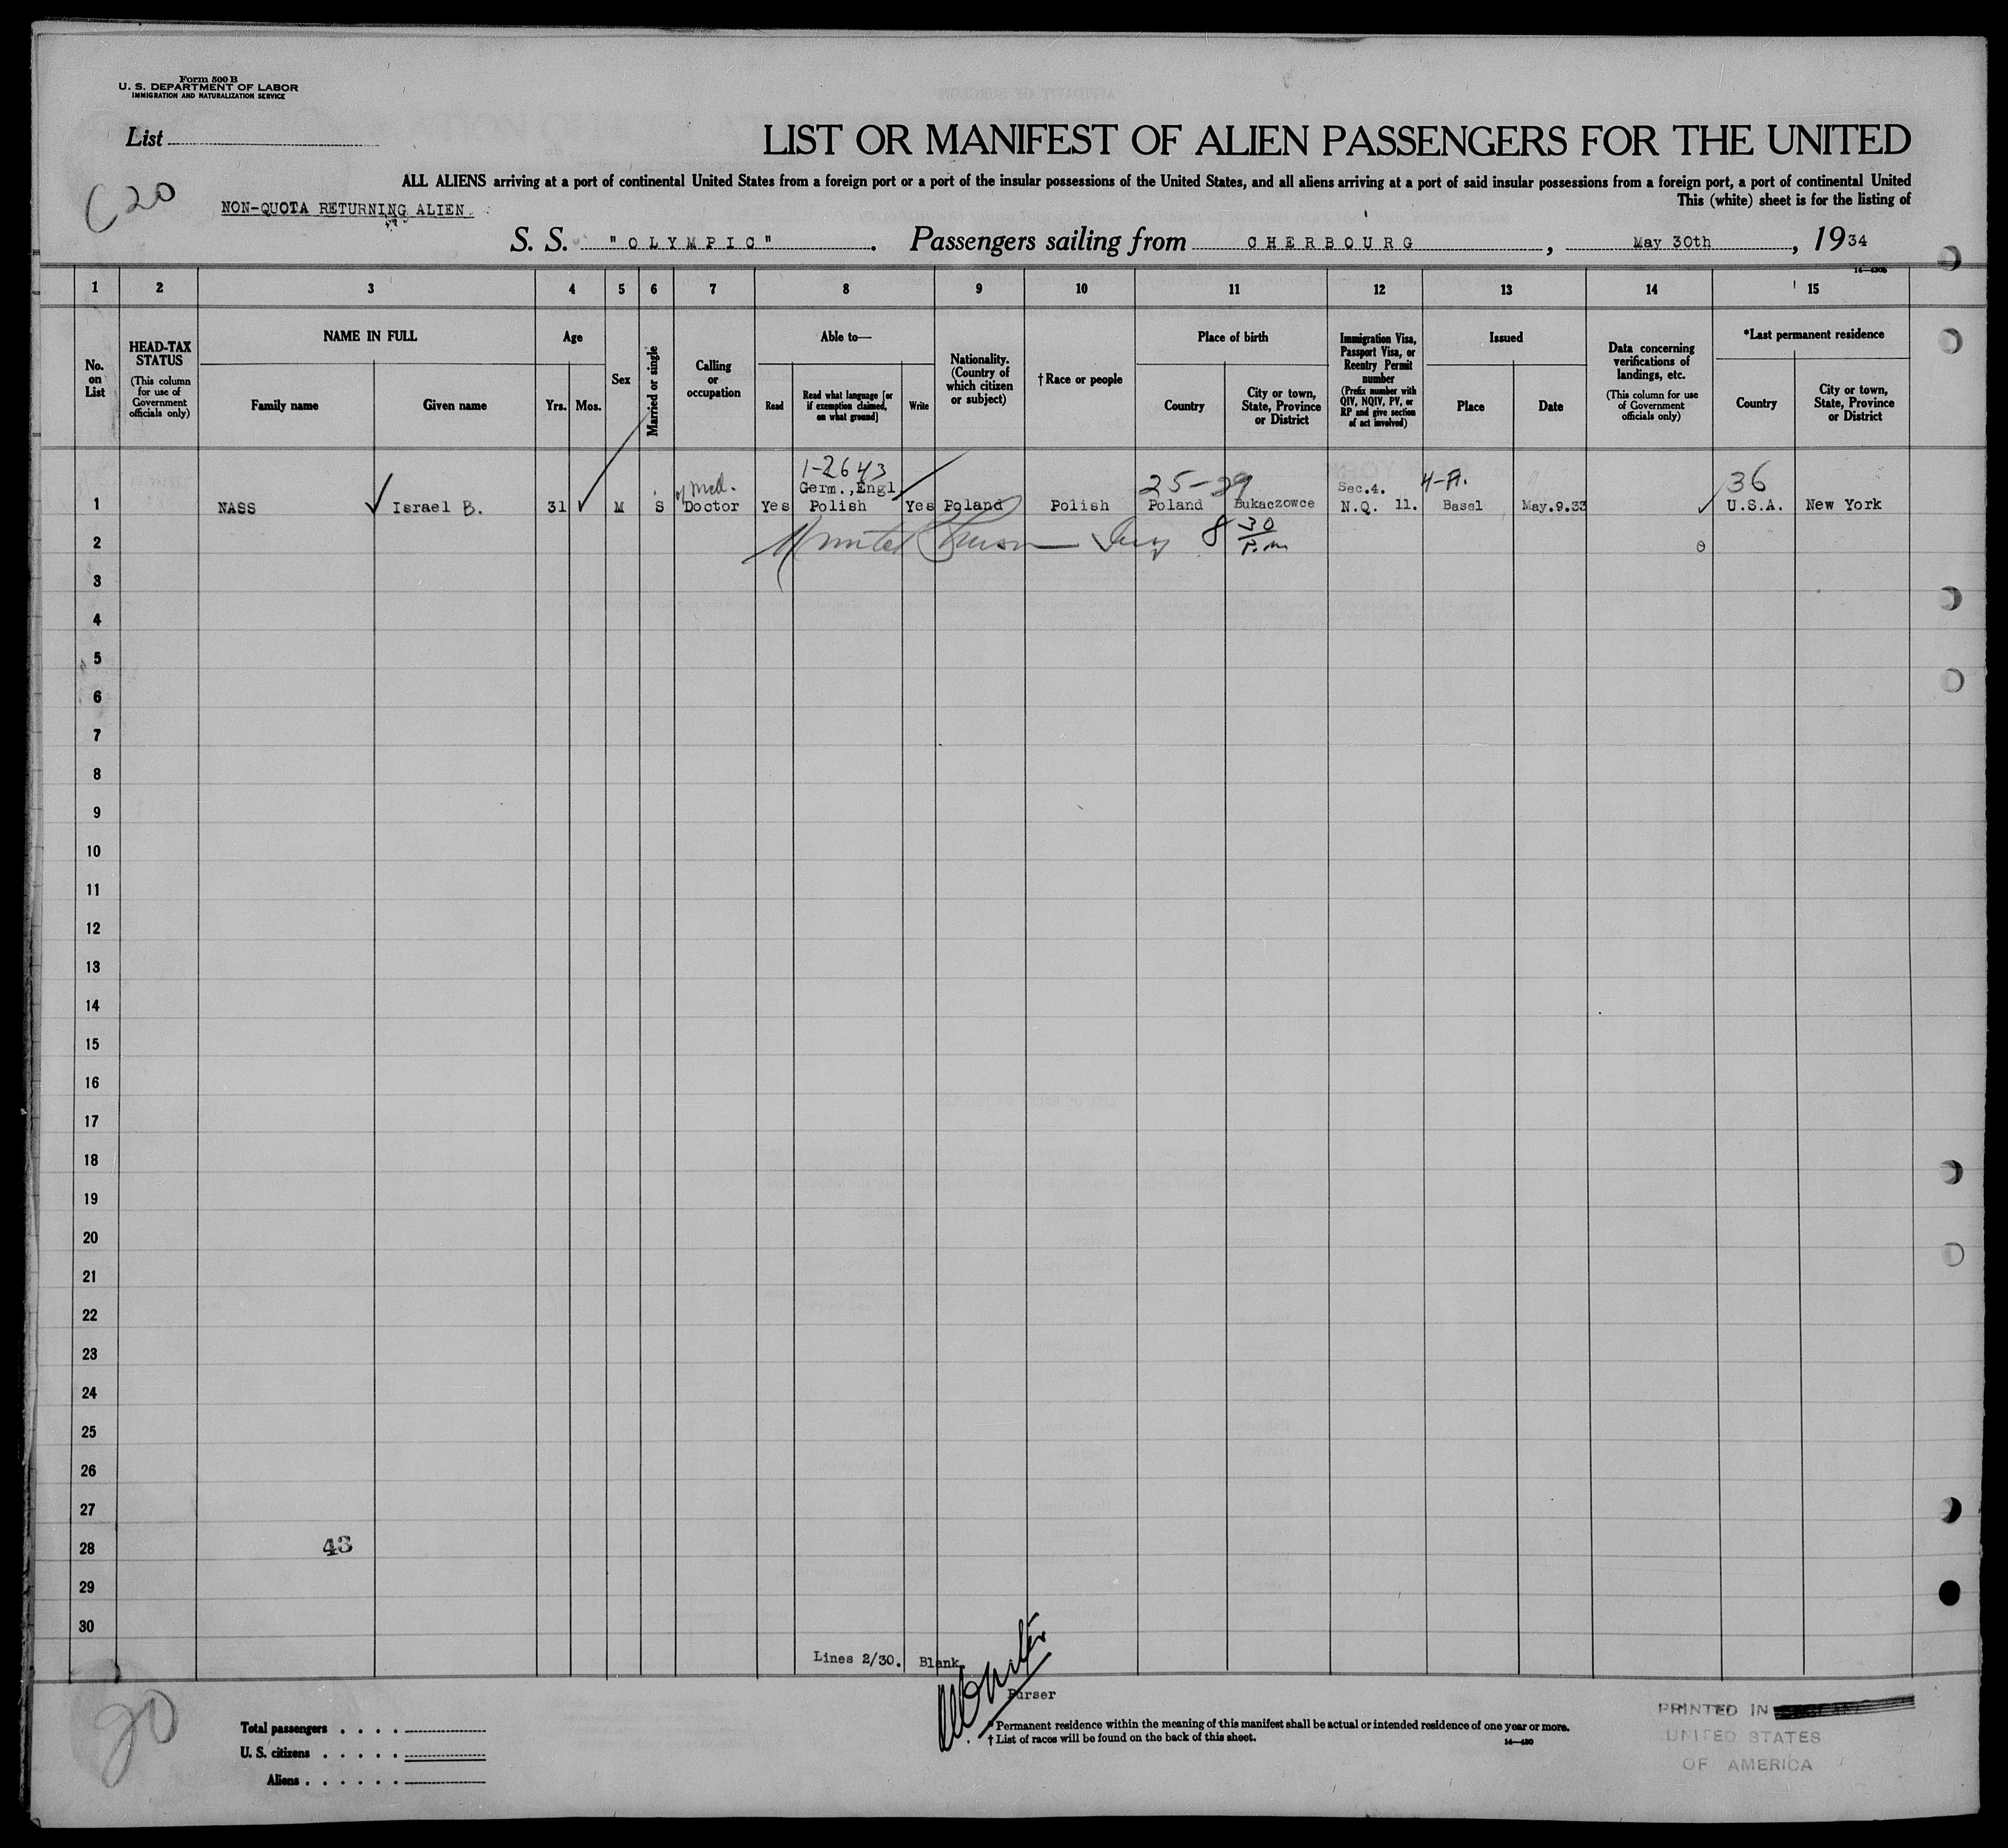 Form 500 B
U. S. DEPARTMENT OF LABOR
IMMIGRATION AND NATURALIZATION SERVICE
List
C 20
LIST OR MANIFEST OF ALIEN PASSENGERS FOR THE UNITED
ALL ALIENS arriving at a port of continental United States from a foreign port or a port of the insular possessions of the United States, and all aliens arriving at a port of said insular possessions from a foreign port, a port of continental United
This (white) sheet is for the listing of
NON-QUOTA RETURNING ALIEN.
S. S. "OLYMPIC". Passengers sailing from CHERBOURG, May 30th, 1934
1 2 3 4 5 6 7 8 9 10 11 12 13 14 15
No. on List
HEAD-TAX STATUS
(This column for use of Government officials only)
NAME IN FULL
Family name
Given name
Age
Yrs.
Mos.
Sex
Married or single
Calling or occupation
Able to—
Read
Read what language [or if exemption claimed, on what ground]
Write
Nationality. (Country of which citizen or subject)
†Race or people
Place of birth
Country
City or town, State, Province or District
Immigration Visa, Passport Visa, or Reentry Permit number
(Prefix number with QIV, NQIV, PV, or RP and give section of act involved)
Issued
Place
Date
Data concerning verifications of landings, etc.
(This column for use of Government officials only)
*Last permanent residence
Country
City or town, State, Province or District
1-2643
25-29
4-A.
36
of Med.
Germ., Engl
Sec.4.
1 NASS ✓ Israel B. 31 ✓ M S Doctor Yes Polish Yes Poland Polish Poland Bukaczowce N.Q. 11. Basel May.9.33 ✓ U.S.A. New York
2 8 30 P.m
3
4
5
6
7
8
9
10
11
12
13
14
15
16
17
18
19
20
21
22
23
24
25
26
27
28 43
29
30
Lines 2/30. Blank
Purser
20
Total passengers
U. S. citizens
Aliens
* Permanent residence within the meaning of this manifest shall be actual or intended residence of one year or more.
† List of races will be found on the back of this sheet.
14—430
PRINTED IN
UNITED STATES
OF AMERICA